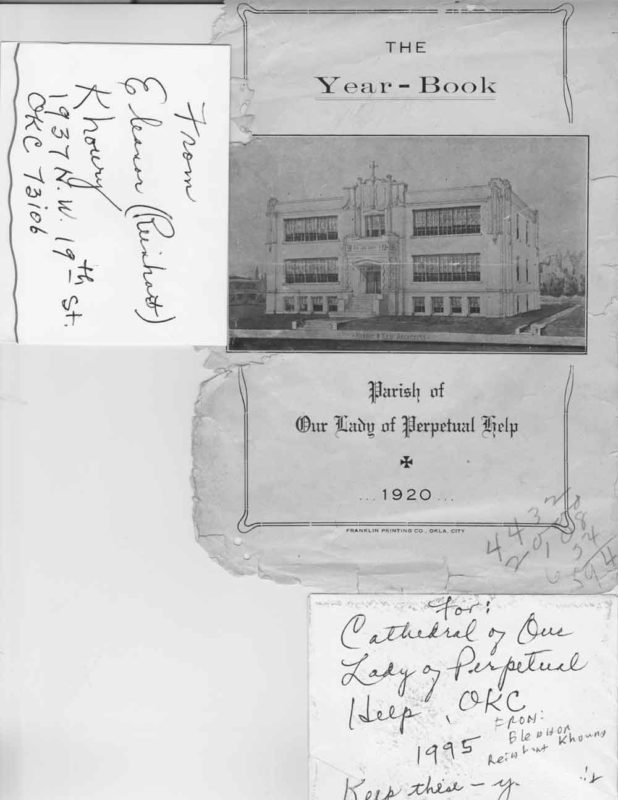 THE
Year-Book
Parish of
Our Lady of Perpetual Help
... 1920 ...
FRANKLIN PRINTING CO., OKLA. CITY
From
Eleanor (Reinhart)
Khoury
1937 N.W. 19th St.
OKC 73106
For:
Cathedral of Our
Lady of Perpetual
Help, OKC
1995
FROM:
Eleanor
Reinhart Khoury
Keep these -